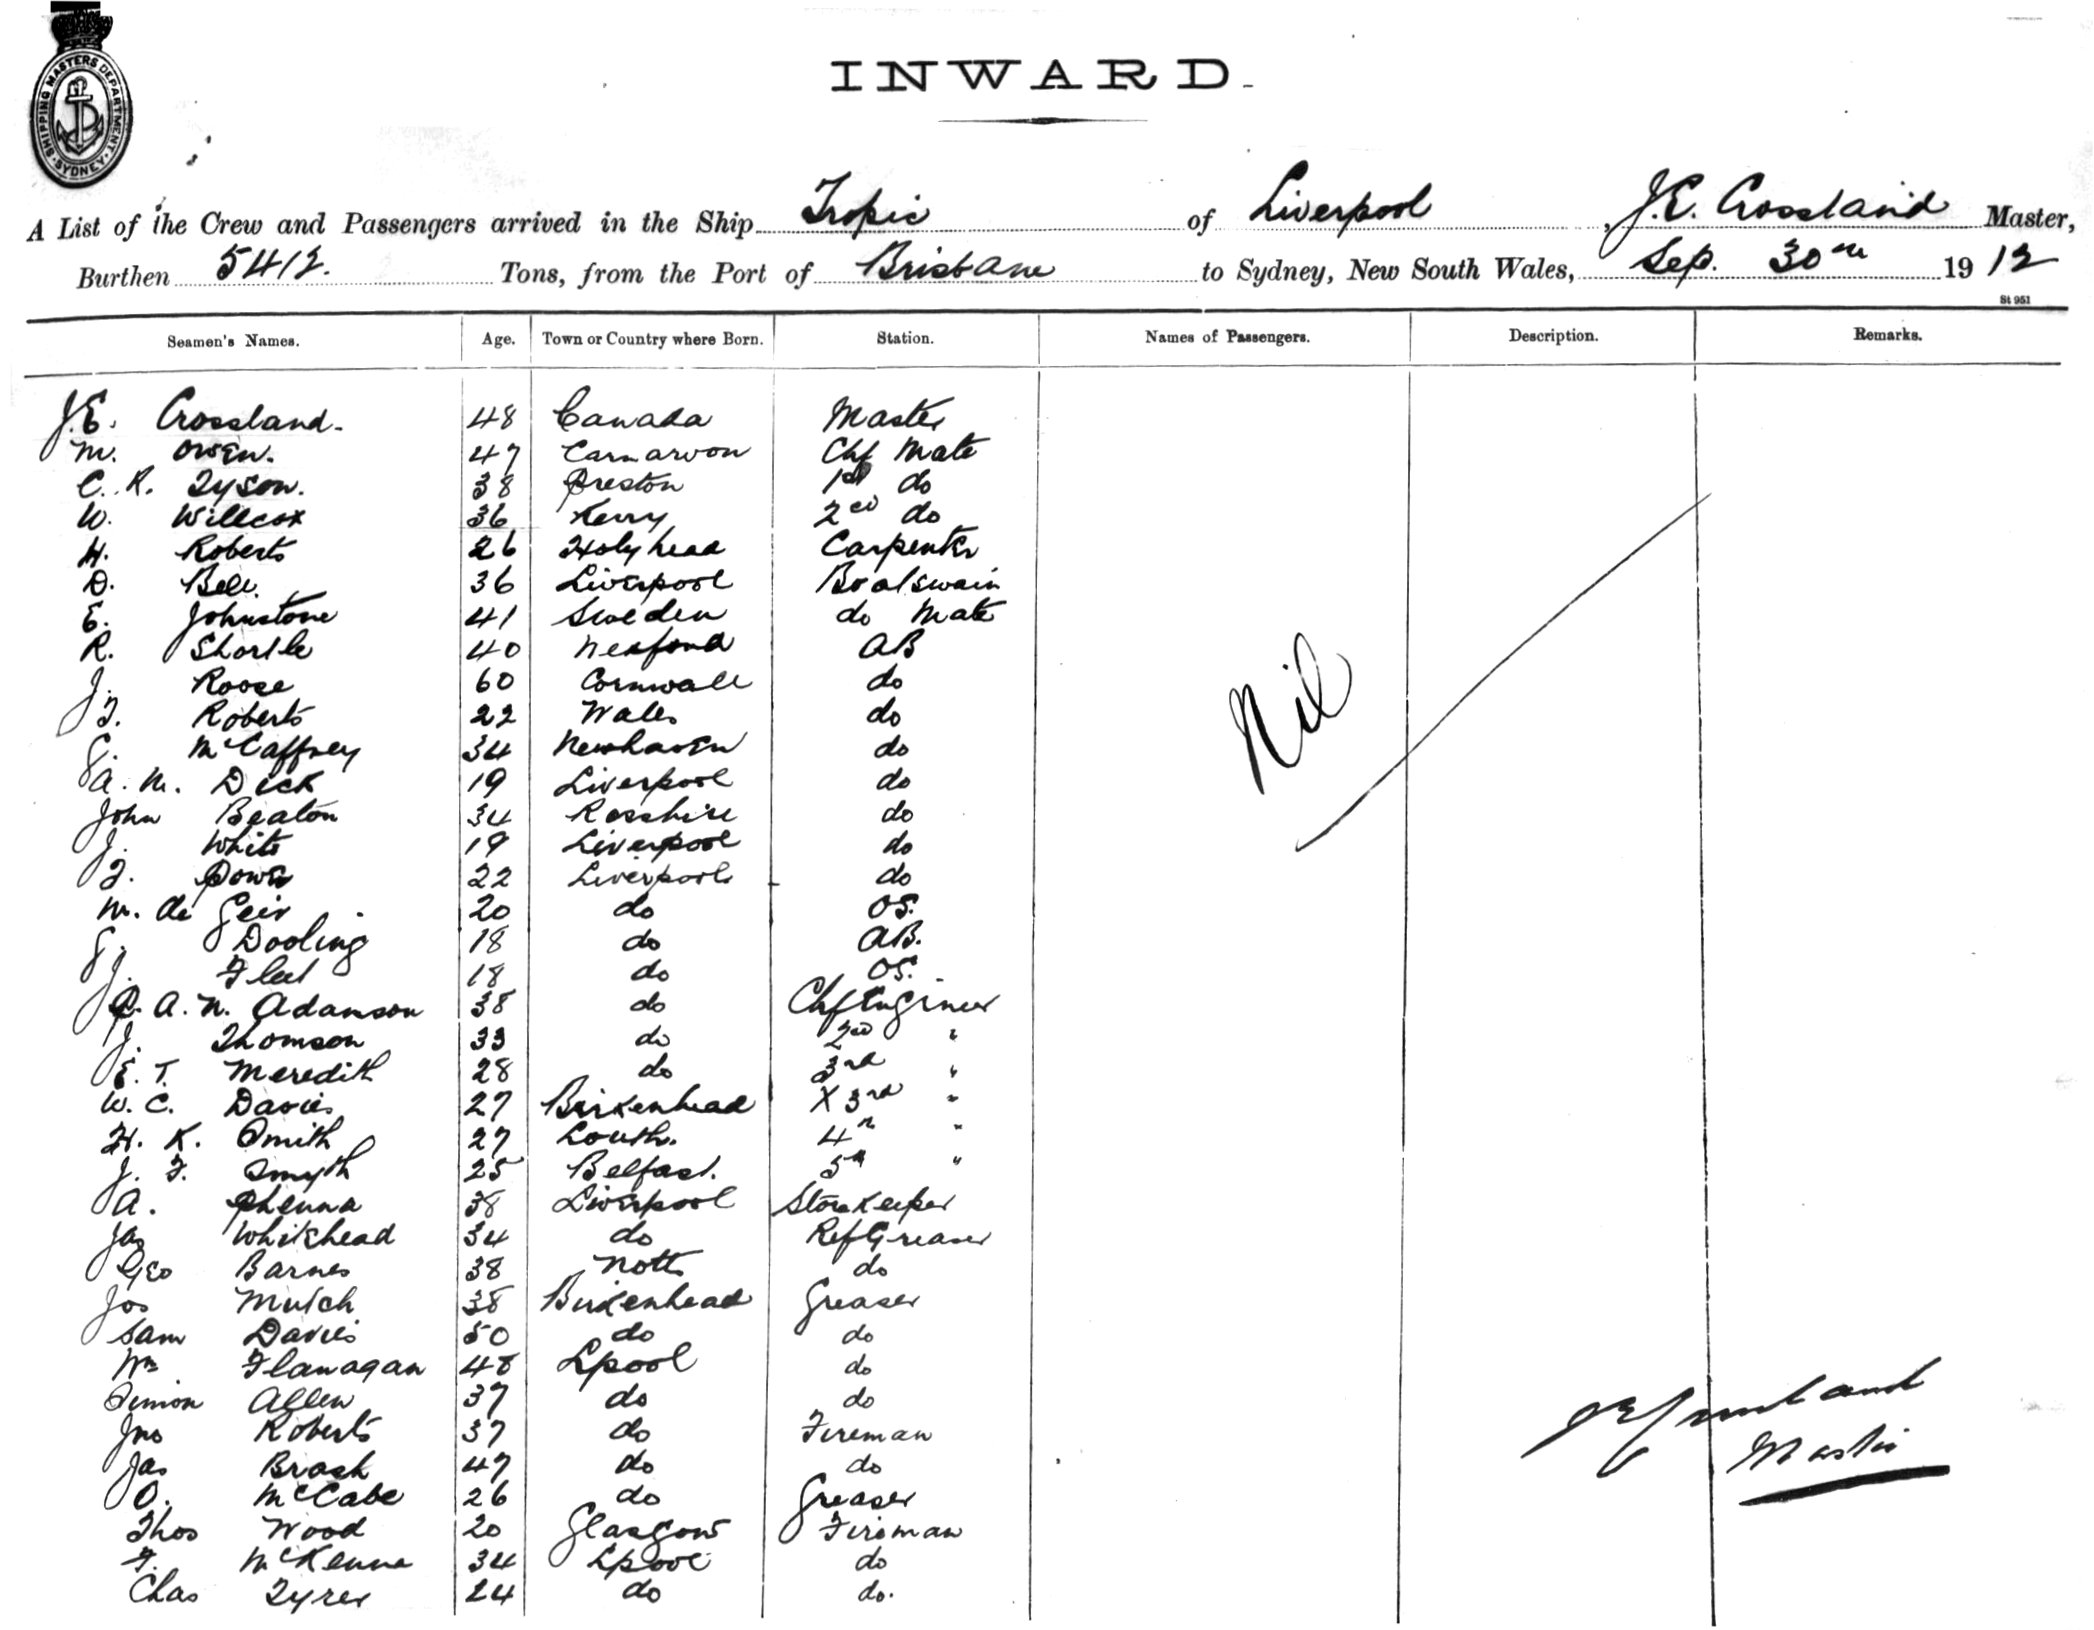 SHIPPING MASTERS DEPARTMENT. SYDNEY
INWARD.
A List of the Crew and Passengers arrived in the Ship Tropic of Liverpool, J.E. Crossland Master,
Burthen 5412. Tons, from the Port of Brisbane to Sydney, New South Wales, Sep. 30th 1912
St 951
Seamen's Names. Age. Town or Country where Born. Station. Names of Passengers. Description. Remarks.
J.E. Crossland. 48 Canada Master
M. Owen. 47 Carnarvon Chf Mate
C. R. Tyson. 38 Preston 1st do
W. Willcox 36 Kerry 2nd do
H. Roberts 26 Holyhead Carpenter
D. Bell. 36 Liverpool Boatswain
E. Johnstone 41 Sweden do Mate
R. Shortle 40 Wexford AB
J. Roose 60 Cornwall do
T. Roberts 22 Wales do
McCaffrey 34 Newhaven do
A. M. Dick 19 Liverpool do
John Beaton 34 Rosshire do
J. White 19 Liverpool do
T. Power 22 Liverpool do
M. de Geir 20 do OS.
Dooling 18 do AB.
J. Fleet 18 do OS.
A. N. Adamson 38 do Chf Engineer
J. Thomson 33 do 2nd "
E. T. Meredith 28 do 3rd "
W. C. Davies 27 Birkenhead X 3rd "
H. K. Smith 27 Louth. 4th "
J. F. Smyth 25 Belfast. 5th "
A. Phenna 38 Liverpool Storekeeper
Jas Whitehead 34 do Ref Greaser
Geo Barnes 38 Notts do
Jos Mutch 38 Birkenhead Greaser
Sam Davies 50 do do
Wm Flanagan 48 Lpool do
Simon Allen 37 do do
Jno Roberts 37 do Fireman
Jas Brash 47 do do
O. McCabe 26 do Greaser
Thos Wood 20 Glasgow Fireman
F. McKenna 34 Lpool do
Chas Tyrer 24 do do.
Nil
JE Crossland
Master